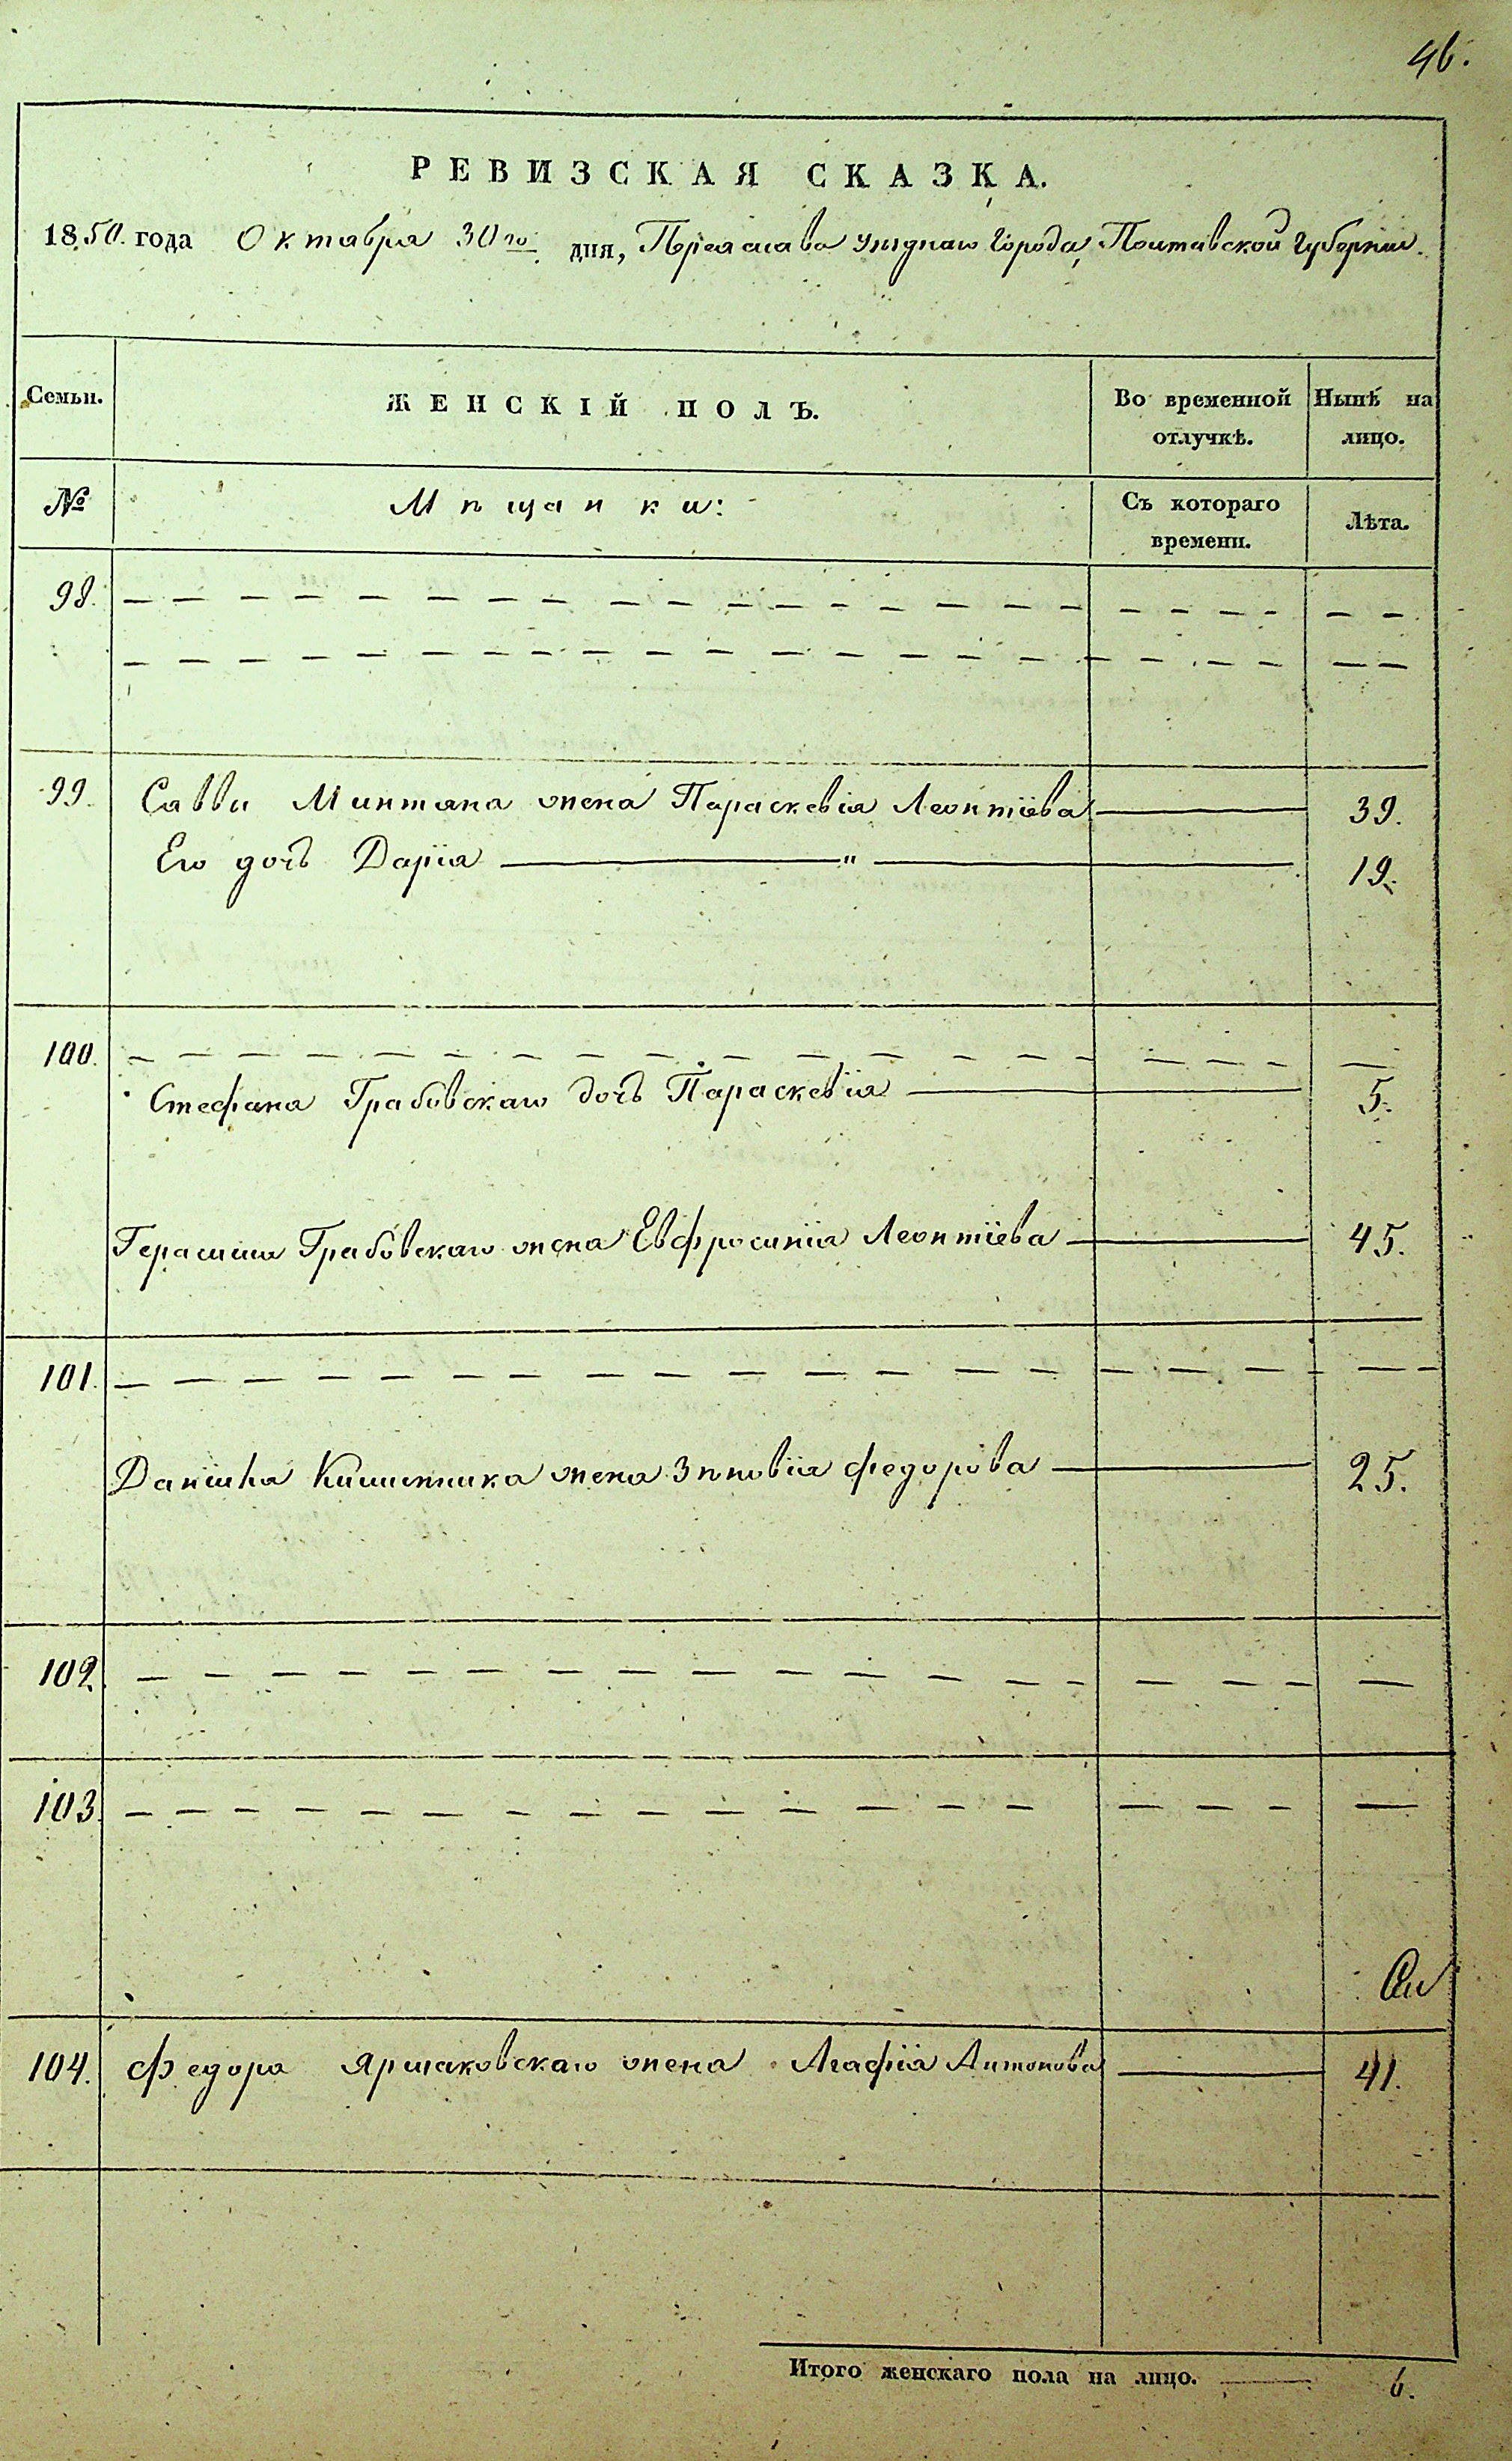 46.
РЕВИЗСКАЯ СКАЗКА.
1850. года Октября 30го дня, Переяслава уѣзднаго Города, Полтавской Губерніи.
Семьи. ЖЕНСКІЙ ПОЛЪ. Во временной отлучкѣ. Нынѣ на лицо.
№ Мѣщанки: Съ котораго времени. Лѣта.
98. — — — — — — — — — — — —
— — — — — — — — — — — —
99. Саввы Минтяна жена Параскевія Леонтіева — 39.
Его дочь Дарія — " — 19.
100. — — — — — — — — — — — —
Стефана Грабовскаго дочь Параскевія — 5.
Герасима Грабовскаго жена Евфросинія Леонтіева — 45.
101. — — — — — — — — — — — —
Даніила жена Зѣновія Федорова — 25.
102. — — — — — — — — — — — —
103. — — — — — — — — — — — —
104. Федора Ярмаковскаго жена Агафія Антонова — 41.
Итого женскаго пола на лицо. — 6.